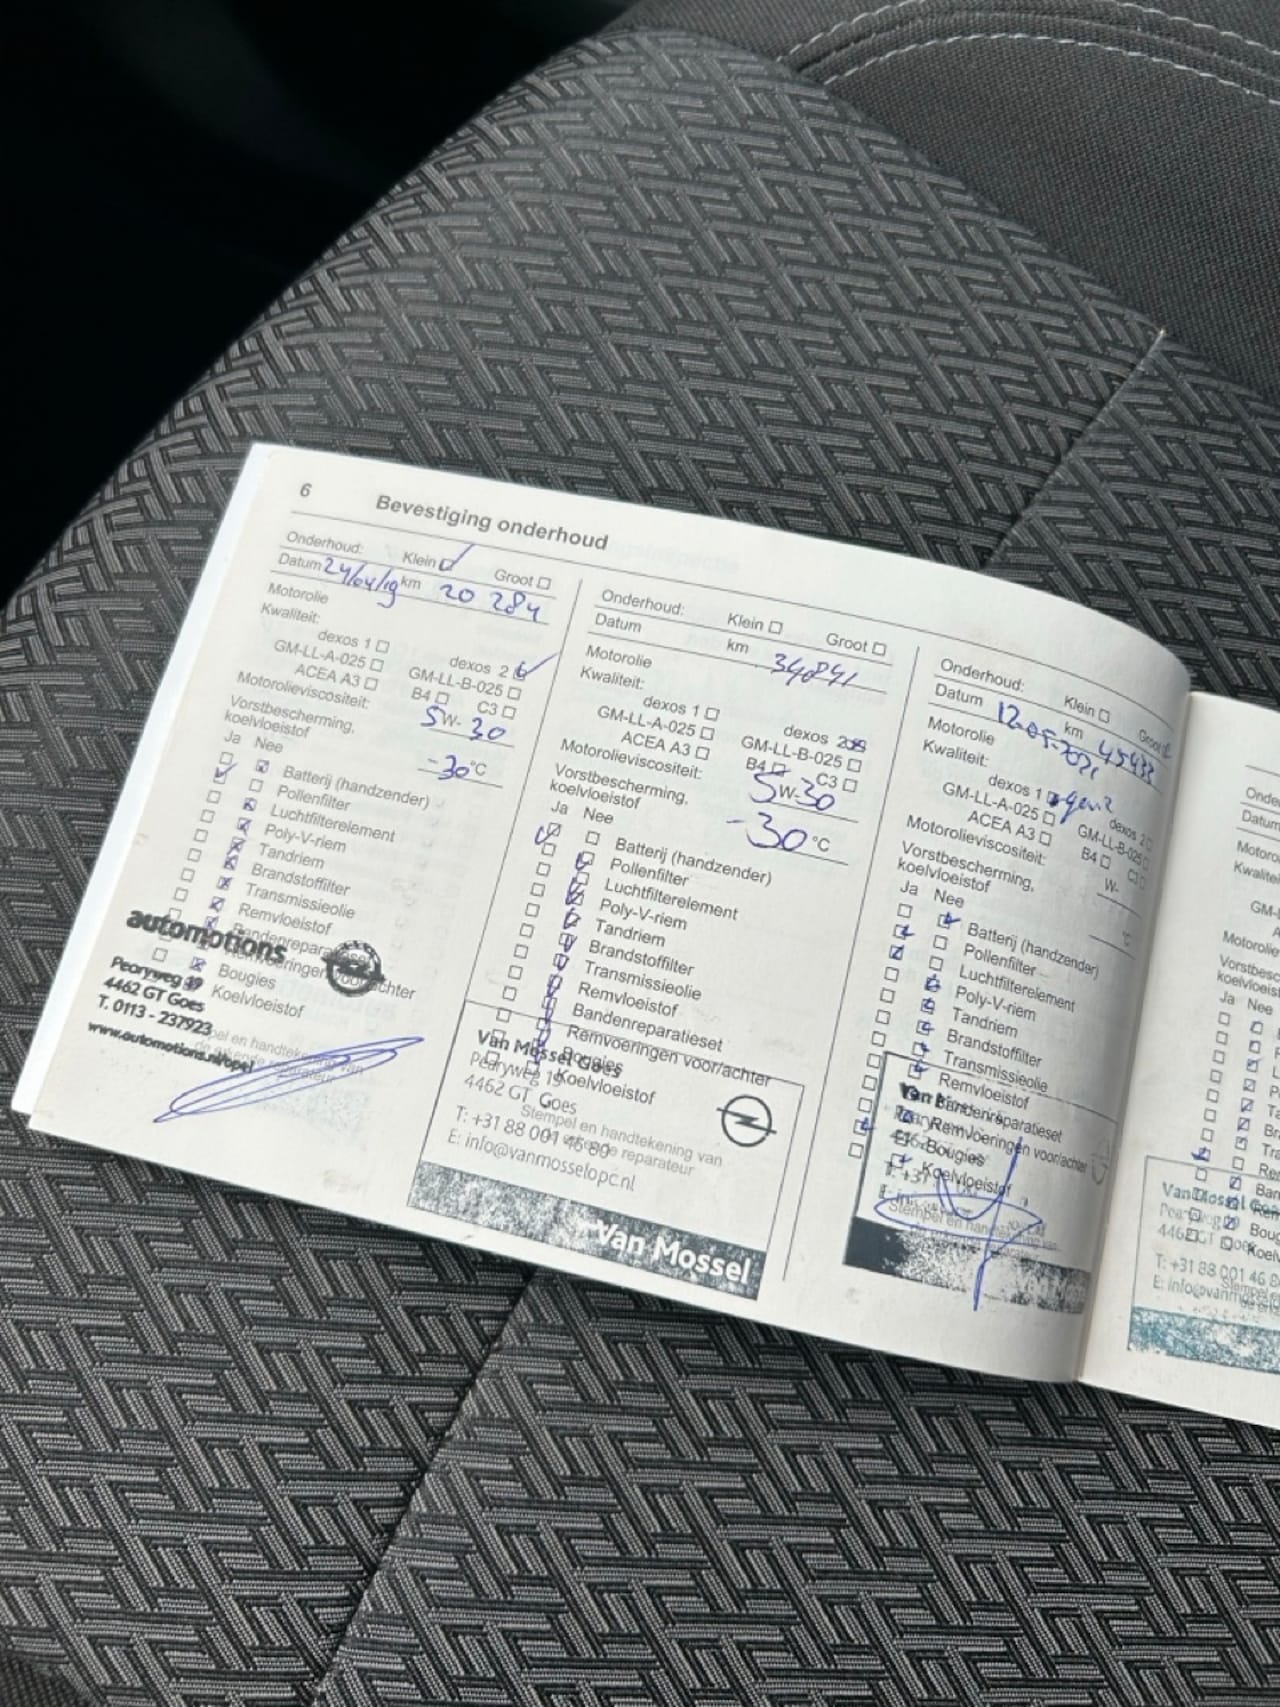 6 Bevestiging onderhoud
Onderhoud: Klein Groot
Datum 24/04/19 km 20 284
Motorolie
Kwaliteit:
dexos 1 dexos 2
GM-LL-A-025 GM-LL-B-025
ACEA A3 B4 C3
Motorolieviscositeit: 5 W- 30
Vorstbescherming,
koelvloeistof -30 °C
Ja Nee
Batterij (handzender)
Pollenfilter
Luchtfilterelement
Poly-V-riem
Tandriem
Brandstoffilter
Transmissieolie
Remvloeistof
Bandenreparatieset
Remvoeringen voor/achter
Bougies
Koelvloeistof
automotions
Pearyweg 19
4462 GT Goes
T. 0113 - 237923
www.automotions.nl/opel
Stempel en handtekening van
de erkende reparateur
Onderhoud: Klein Groot
Datum km 34841
Motorolie
Kwaliteit:
dexos 1 dexos 2
GM-LL-A-025 GM-LL-B-025
ACEA A3 B4 C3
Motorolieviscositeit: 5 W- 30
Vorstbescherming,
koelvloeistof -30 °C
Ja Nee
Batterij (handzender)
Pollenfilter
Luchtfilterelement
Poly-V-riem
Tandriem
Brandstoffilter
Transmissieolie
Remvloeistof
Bandenreparatieset
Remvoeringen voor/achter
Bougies
Koelvloeistof
Van Mossel Goes
Pearyweg 19
4462 GT Goes
T: +31 88 001 46 80
E: info@vanmosselopc.nl
Stempel en handtekening van
reparateur
Van Mossel
Onderhoud: Klein Groot
Datum 12-05-2021 km
Motorolie
Kwaliteit:
dexos 1 gen2 dexos 2
GM-LL-A-025 GM-LL-B-025
ACEA A3 B4 C3
Motorolieviscositeit: W-
Vorstbescherming,
koelvloeistof °C
Ja Nee
Batterij (handzender)
Pollenfilter
Luchtfilterelement
Poly-V-riem
Tandriem
Brandstoffilter
Transmissieolie
Remvloeistof
Bandenreparatieset
Remvoeringen voor/achter
Bougies
Koelvloeistof
Van
Stempel en
Ja Nee
Van Mossel
T: +31 88 001 46 8